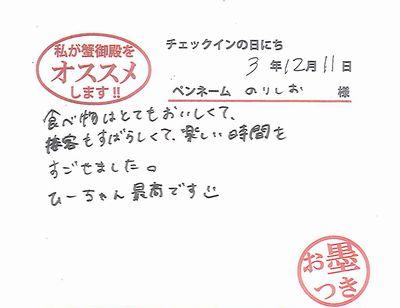 私が蟹御殿を
オススメ
します!!
チェックインの日にち
3年12月11日
ペンネーム のりしお 様
食べ物はとてもおいしくて、
接客もすばらしくて、楽しい時間を
すごせました。
ひーちゃん最高です
お墨
つき